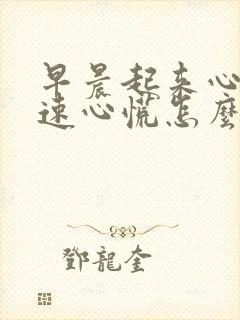 早晨起来心
速心慌怎麼
鄧龍奎